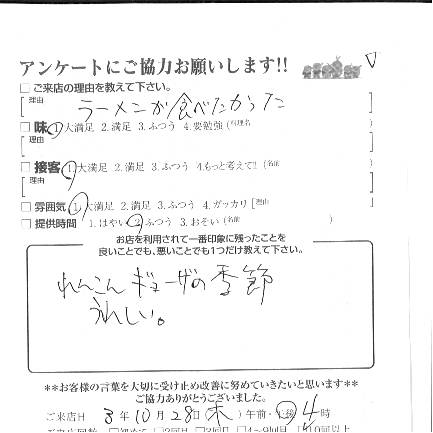 アンケートにご協力お願いします!!
□ご来店の理由を教えて下さい。
[理由 ラーメンが食べたかった]
□味 1.大満足 2.満足 3.ふつう 4.要勉強(料理名 )
[理由 ]
□接客 1.大満足 2.満足 3.ふつう 4.もっと考えて!!(名前 )
[理由 ]
□雰囲気 1.大満足 2.満足 3.ふつう 4.ガッカリ[理由 ]
□提供時間 1.はやい 2.ふつう 3.おそい(名前 )
お店を利用されて一番印象に残ったことを
良いことでも、悪いことでも1つだけ教えて下さい。
れんこんギョーザの季節
うれしい。
**お客様の言葉を大切に受け止め改善に努めていきたいと思います**
ご協力ありがとうございました。
ご来店日 3年10月28日(木) 午前・午後 4時
ご来店回数 □初めて □2回目 □3回目 □4〜9回目 □10回以上